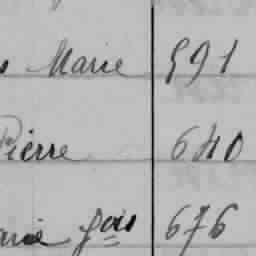 s Marie 591
Pierre 640
arie fois 676